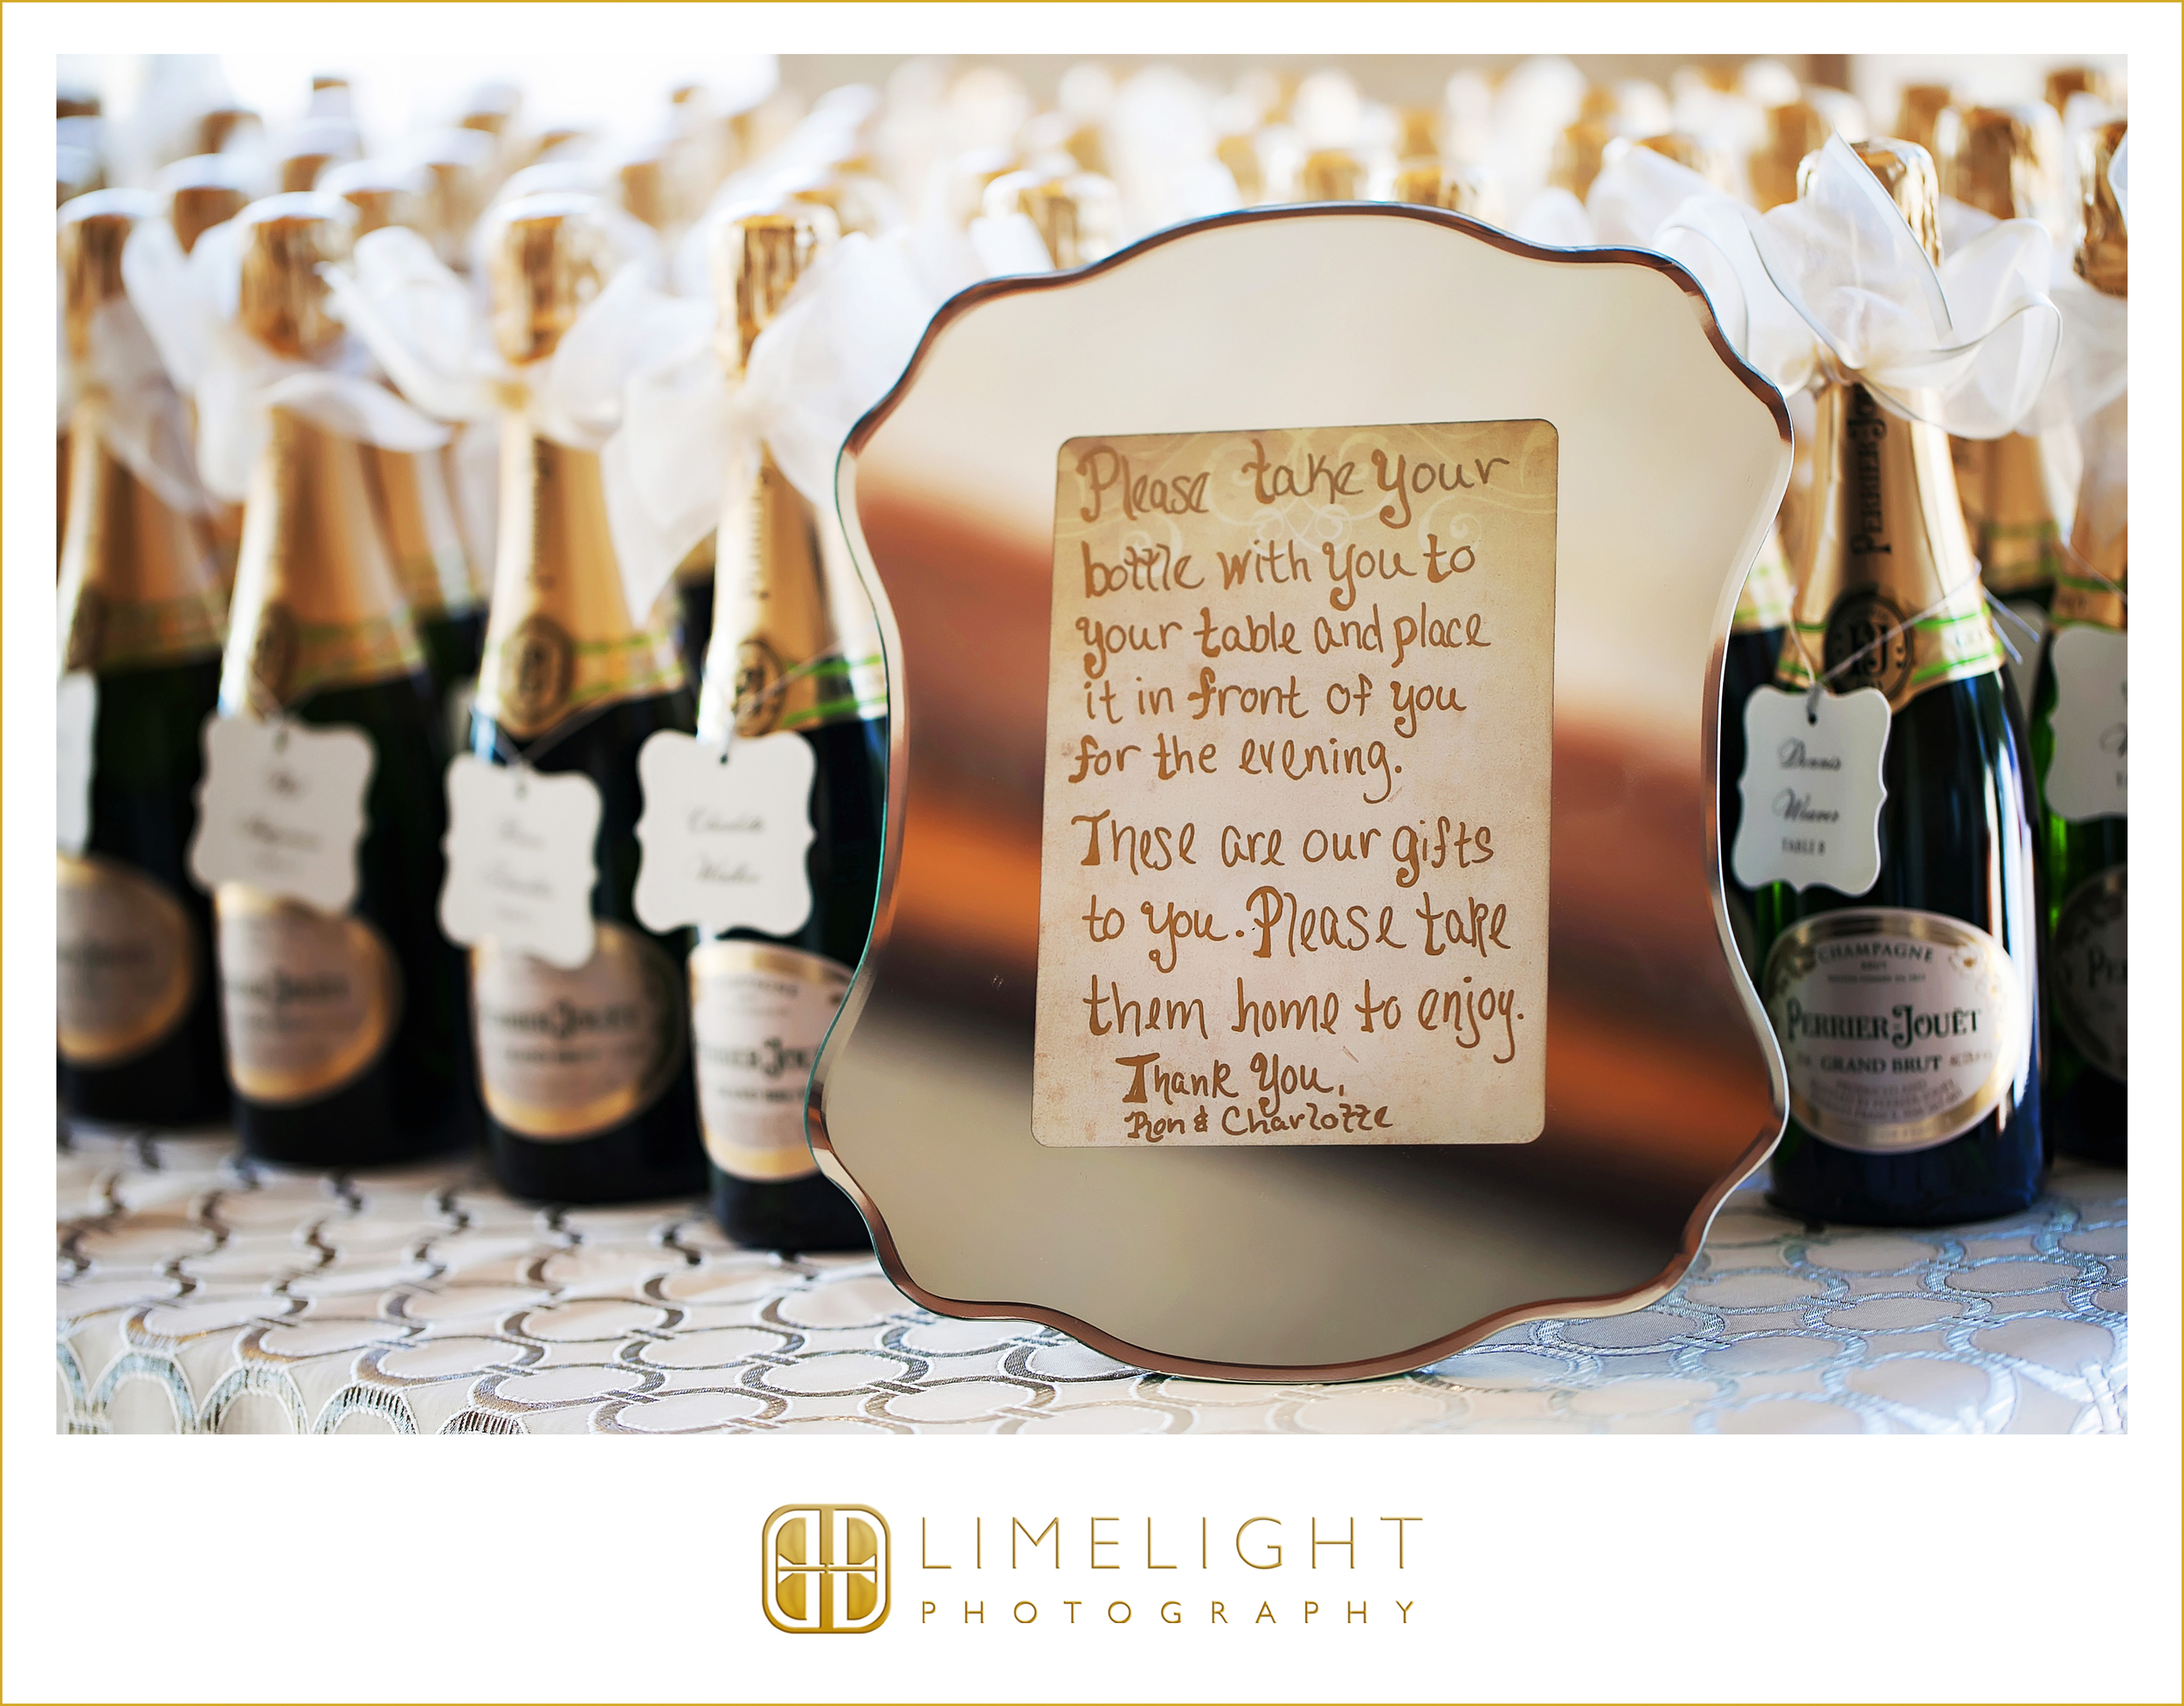 Please take your
bottle with you to
your table and place
it in front of you
for the evening.
These are our gifts
to you. Please take
them home to enjoy.
Thank You,
Ron & Charlotte
Dennis
Weaver
TABLE 8
CHAMPAGNE
BRUT
PERRIER-JOUËT
GRAND BRUT
LIMELIGHT
PHOTOGRAPHY